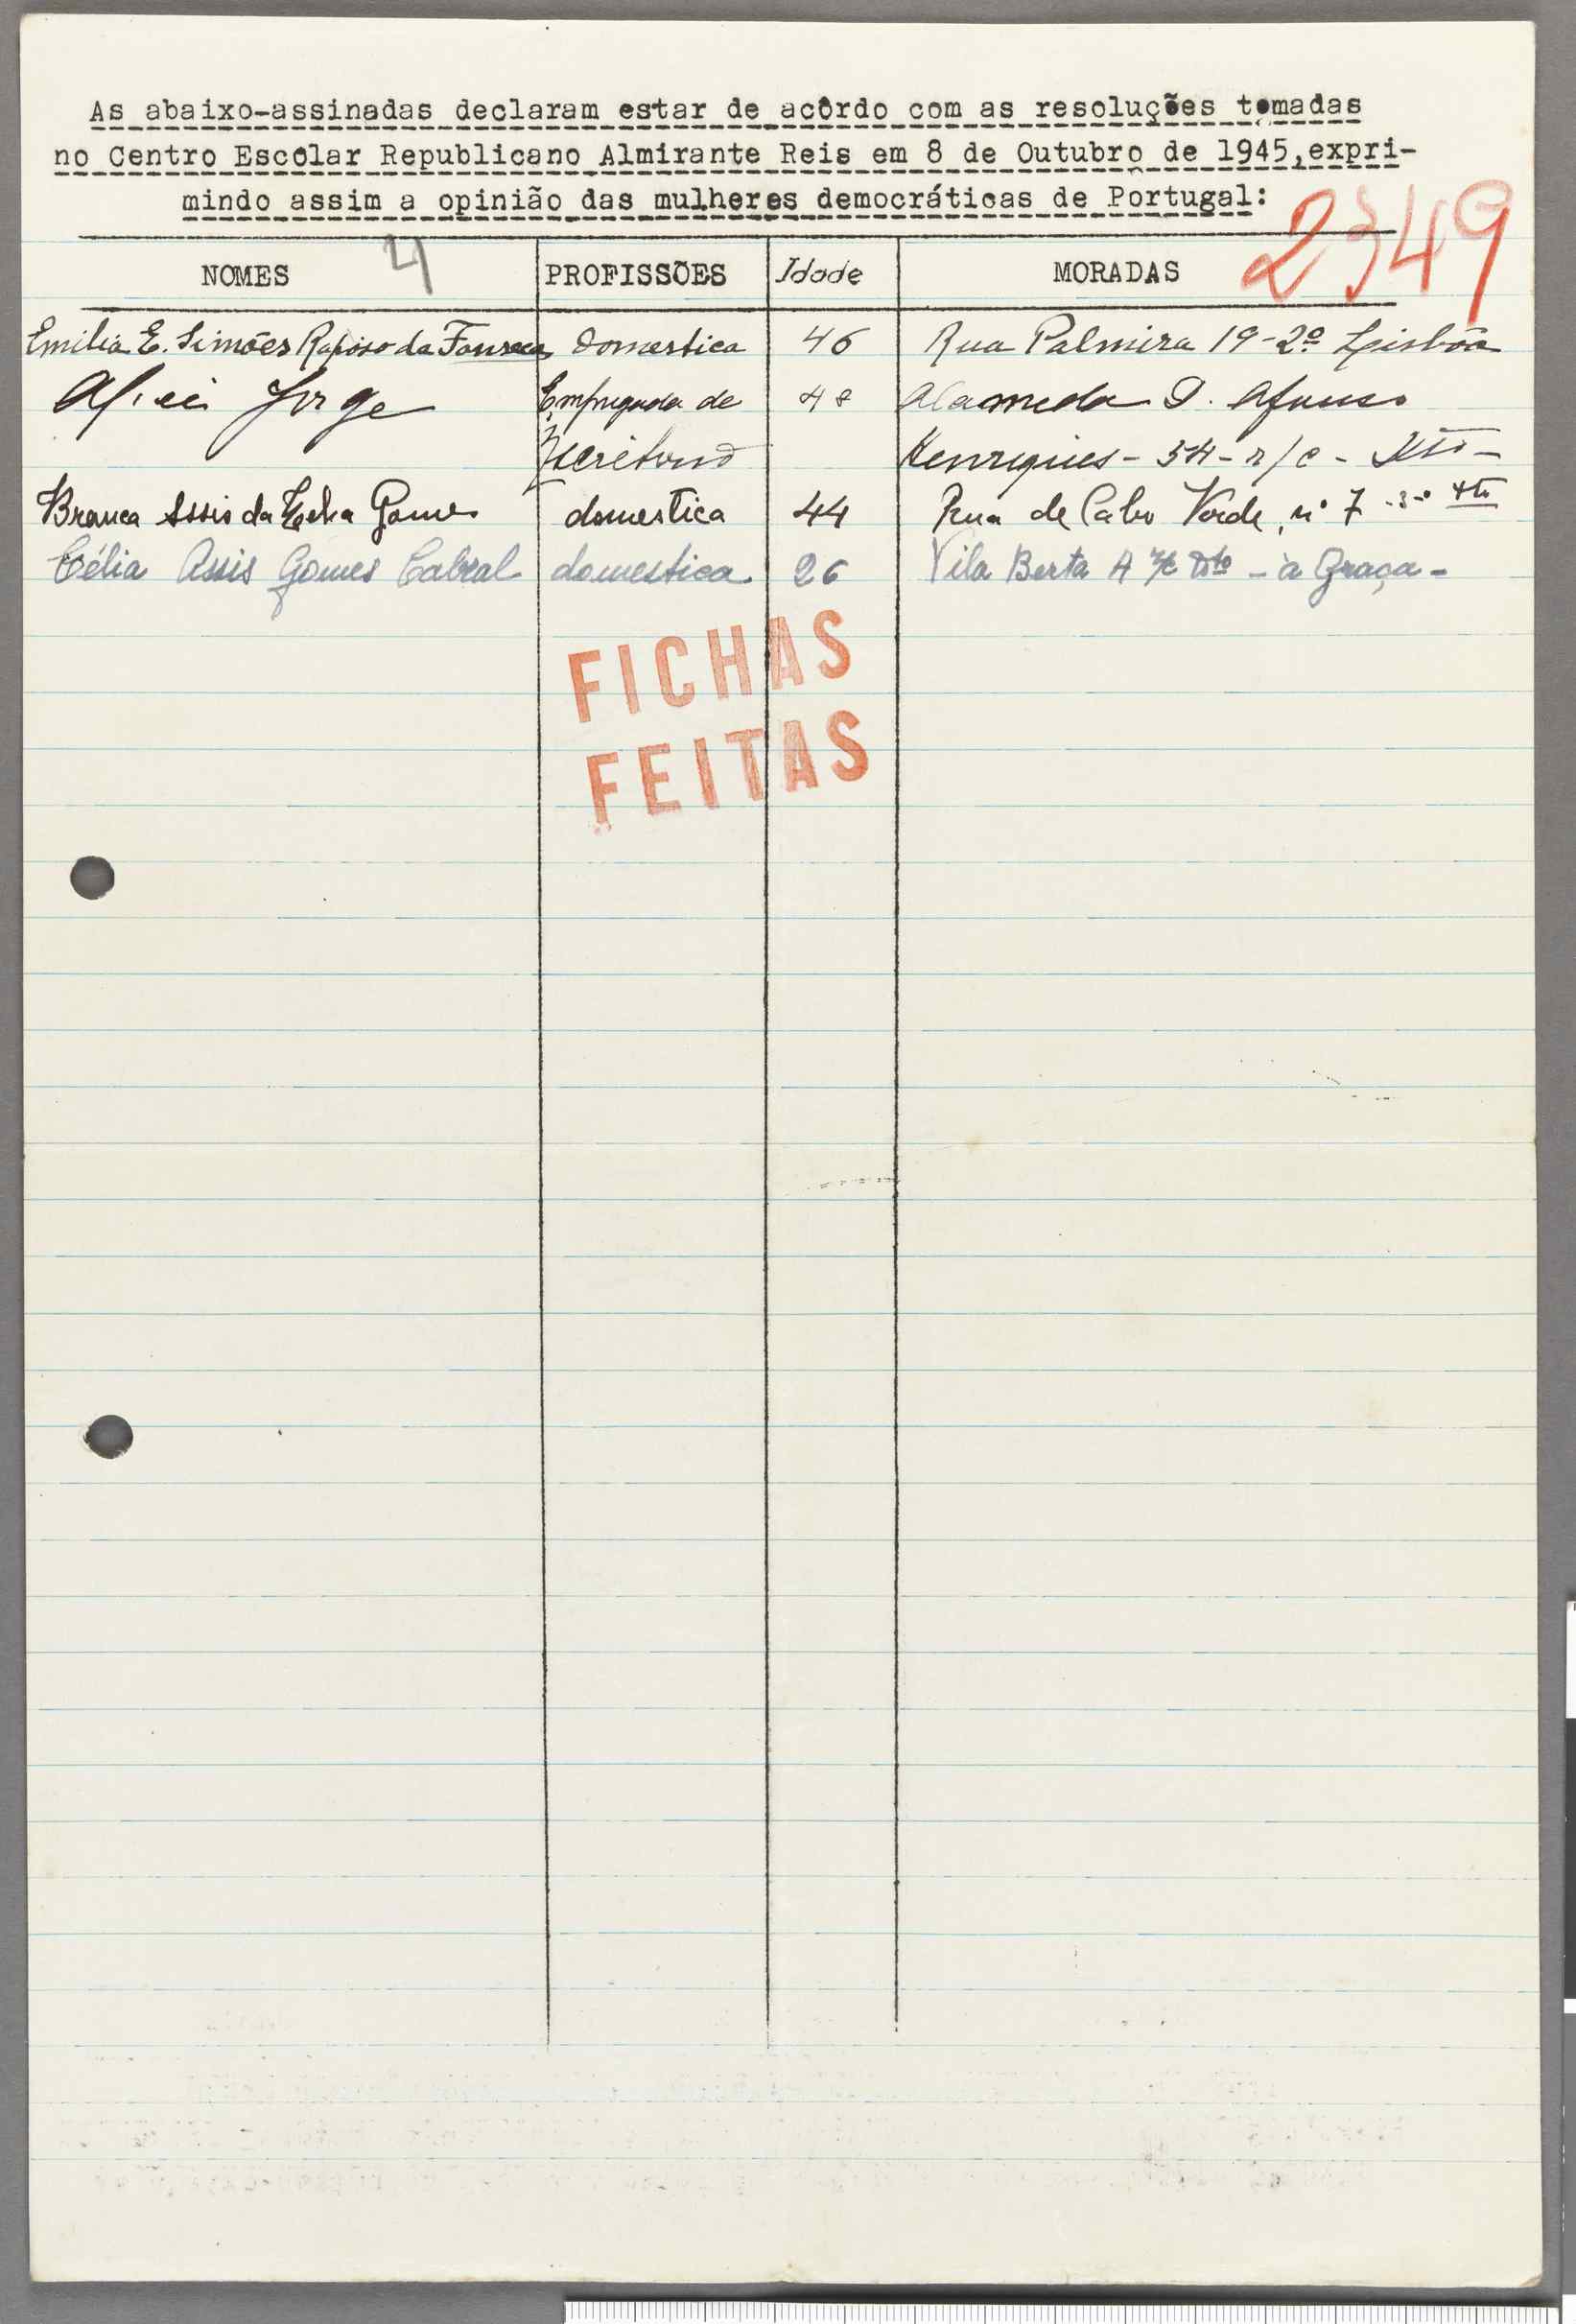 As abaixo-assinadas declaram estar de acôrdo com as resoluções tomadas
no Centro Escolar Republicano Almirante Reis em 8 de Outubro de 1945,expri-
mindo assim a opinião das mulheres democráticas de Portugal:
2349
4
NOMES PROFISSÕES Idade MORADAS
Emilia E. Simões Raposo da Fonseca domestica 46 Rua Palmira 19-2º Lisbôa
Jorge Empregada de 48 Alameda D. Afonso
Escritorio Henriques - 54 - r/c -
Branca Assis da Gomes domestica 44 Rua de Cabo Verde, nº 7 - 3º
Célia Assis Gomes Cabral domestica 26 Vila Berta 4 r/c Dto - à Graça -
FICHAS
FEITAS